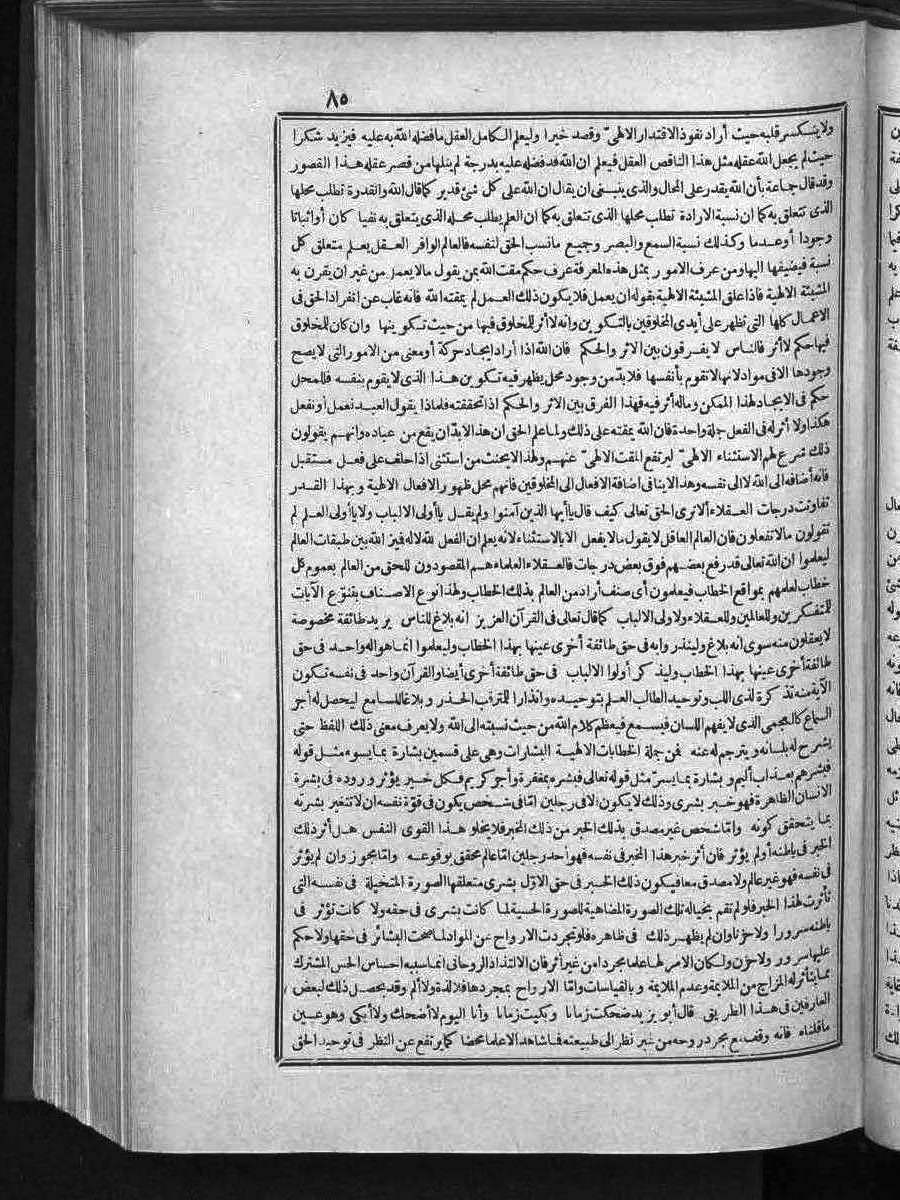 ٨٥
ولا ينكسر قلبه حيث أراد نفوذ الاقتدار الالهى وقصد خيرا وليعلم الكامل العقل ما فضله الله به عليه فيزيد شكرا
حيث لم يجعل الله عقله مثل هذا الناقص العقل فيعلم ان الله قد فضله عليه بدرجة لم ينلها من قصر عقله هذا القصور
وقد قال جماعة بأن الله يقدر على المحال والذى ينبغى ان يقال ان الله على كل شئ قدير كما قال الله والقدرة تطلب محلها
الذى تتعلق به كما ان نسبة الارادة تطلب محلها الذى تتعلق به كما ان العلم يطلب محله الذى يتعلق به نفيا كان أو اثباتا
وجودا أو عدما وكذلك نسبة السمع والبصر وجميع ما نسب الحق لنفسه فالعالم الوافر العقل يعلم متعلق كل
نسبة فيضيفها اليها ومن عرف الامور بمثل هذه المعرفة عرف حكم مقت الله بمن يقول ما لا يعمل من غير ان يقرن به
المشيئة الالهية فاذا علق المشيئة الالهية بقوله ان يعمل فلا يكون ذلك العمل لم يمقته الله فانه غاب عن انفراد الحق فى
الاعمال كلها التى تظهر على أيدى المخلوقين بالتكوين وانه لا أثر للمخلوق فيها من حيث تكوينها وان كان للمخلوق
فيها حكم لا أثر فالناس لا يفرقون بين الاثر والحكم فان الله اذا أراد ايجاد حركة أو معنى من الامور التى لا يصح
وجودها الا فى مواد لانها لا تقوم بأنفسها فلا بد من وجود محل يظهر فيه تكوين هذا الذى لا يقوم بنفسه فللمحل
حكم فى الايجاد لهذا الممكن وماله أثر فيه فهذا الفرق بين الاثر والحكم اذا تحققته فلماذا يقول العبد نعمل أو نفعل
هكذا ولا أثر له فى الفعل جلة واحدة فان الله يمقته على ذلك ولما علم الحق ان هذا لا بد ان يقع من عباده وانهم يقولون
ذلك شرع لهم الاستثناء الالهى ليرتفع المقت الالهى عنهم ولهذا لا يحنث من استثنى اذا حلف على فعل مستقبل
فانه أضافه الى الله لا الى نفسه وهذا لا ينافى اضافة الافعال الى المخلوقين فانهم محل ظهور الافعال الالهية وبهذا القدر
تفاوتت درجات العقلاء ألا ترى الحق تعالى كيف قال يا أيها الذين آمنوا ولم يقل يا أولى الالباب ولا يا أولى العلم لم
تقولون ما لا تفعلون فان العالم العاقل لا يقول ما لا يفعل الا بالاستثناء لانه يعلم ان الفعل لله لا له فميز الله بين طبقات العالم
ليعلموا ان الله تعالى قد رفع بعضهم فوق بعض درجات فالعقلاء العلماء هم المقصودون للحق من العالم بعموم كل
خطاب لعلمهم بمواقع الخطاب فيعلمون أى صنف أراد من العالم بذلك الخطاب ولهذا نوع الاصناف بتنوع الآيات
للمتفكرين وللعالمين وللعقلاء ولاولى الالباب كما قال تعالى فى القرآن العزيز انه بلاغ للناس يريد طائفة مخصوصة
لا يعقلون منه سوى انه بلاغ ولينذروا به فى حق طائفة أخرى عينها بهذا الخطاب وليعلموا انما هو اله واحد فى حق
طائفة أخرى عينها بهذا الخطاب وليذكر أولوا الالباب فى حق طائفة أخرى أيضا والقرآن واحد فى نفسه تكون
الآية منه تذكرة لذى اللب وتوحيد الطالب العلم بتوحيده وانذارا للمترقب الحذر وبلاغا للسامع ليحصل له أجر
السماع كالعجمى الذى لا يفهم اللسان فيسمع فيعظم كلام الله من حيث نسبته الى الله ولا يعرف معنى ذلك اللفظ حتى
يشرح له بلسانه ويترجم له عنه فمن جملة الخطابات الالهية البشارات وهى على قسمين بشارة بما يسوء مثل قوله
فبشرهم بعذاب أليم وبشارة بما يسر مثل قوله تعالى فبشره بمغفرة وأجر كريم فكل خبر يؤثر وروده فى بشرة
الانسان الظاهرة فهو خبر بشرى وذلك لا يكون الا فى رجلين اما فى شخص يكون فى قوة نفسه ان لا تتغير بشرته
بما يتحقق كونه واما شخص غير مصدق بذلك الخبر من ذلك المخبر فلا يخلو هذا القوى النفس هل أثر ذلك
الخبر فى باطنه أو لم يؤثر فان أثر خبر هذا المخبر فى نفسه فهو أحد رجلين اما عالم محقق بوقوعه واما مجوز وان لم يؤثر
فى نفسه فهو غير عالم ولا مصدق معا فيكون ذلك الخبر فى حق الاول بشرى متعلقها الصورة المتخيلة فى نفسه التى
تأثرت لهذا الخبر فلو لم تقم بخياله تلك الصورة المضاهية للصورة الحسية لما كانت بشرى فى حقه ولا كانت تؤثر فى
باطنه سرورا ولا حزنا وان لم يظهر ذلك فى ظاهره فلو تجردت الارواح عن المواد لما صحت البشائر فى حقها ولا حكم
عليها سرور ولا حزن ولكان الامر لها علما مجردا من غير أثر فان الالتذاذ الروحانى انما سببه احساس الحس المشترك
بما يتأثر له المزاج من الملايمة وعدم الملايمة وبالقياسات واما الارواح بمجردها فلا لذة ولا ألم وقد يحصل ذلك لبعض
العارفين فى هذا الطريق قال أبو يزيد ضحكت زمانا وبكيت زمانا وأنا اليوم لا أضحك ولا أبكى وهو عين
ما قلناه فانه وقف مع مجرد روحه من غير نظر الى طبيعته فما شاهد الا علما محضا كما يرتفع عن النظر فى توحيد الحق